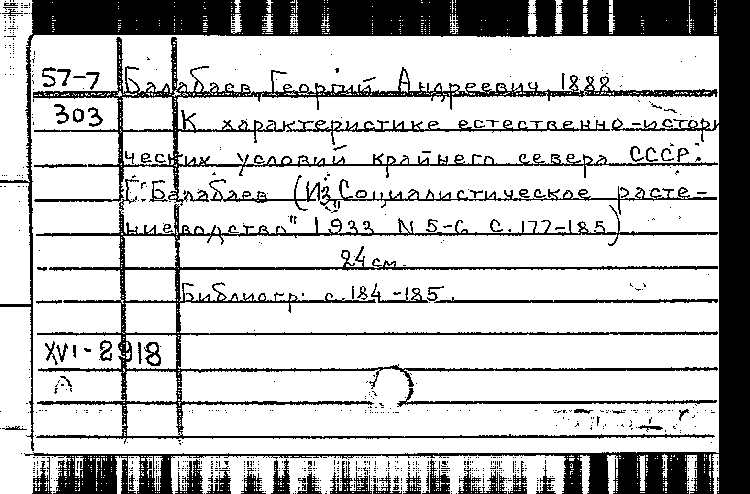 57-7 Балабаев, Георгий Андреевич, 1888
303 К характеристике естественно-истори
ческих условий крайнего севера СССР.
Г. Балабаев (Из "Социалистическое расте-
ниеводство" 1933 N 5-6 С. 177-185)
24 см.
Библиогр: с. 184-185.
XVI-2918
А